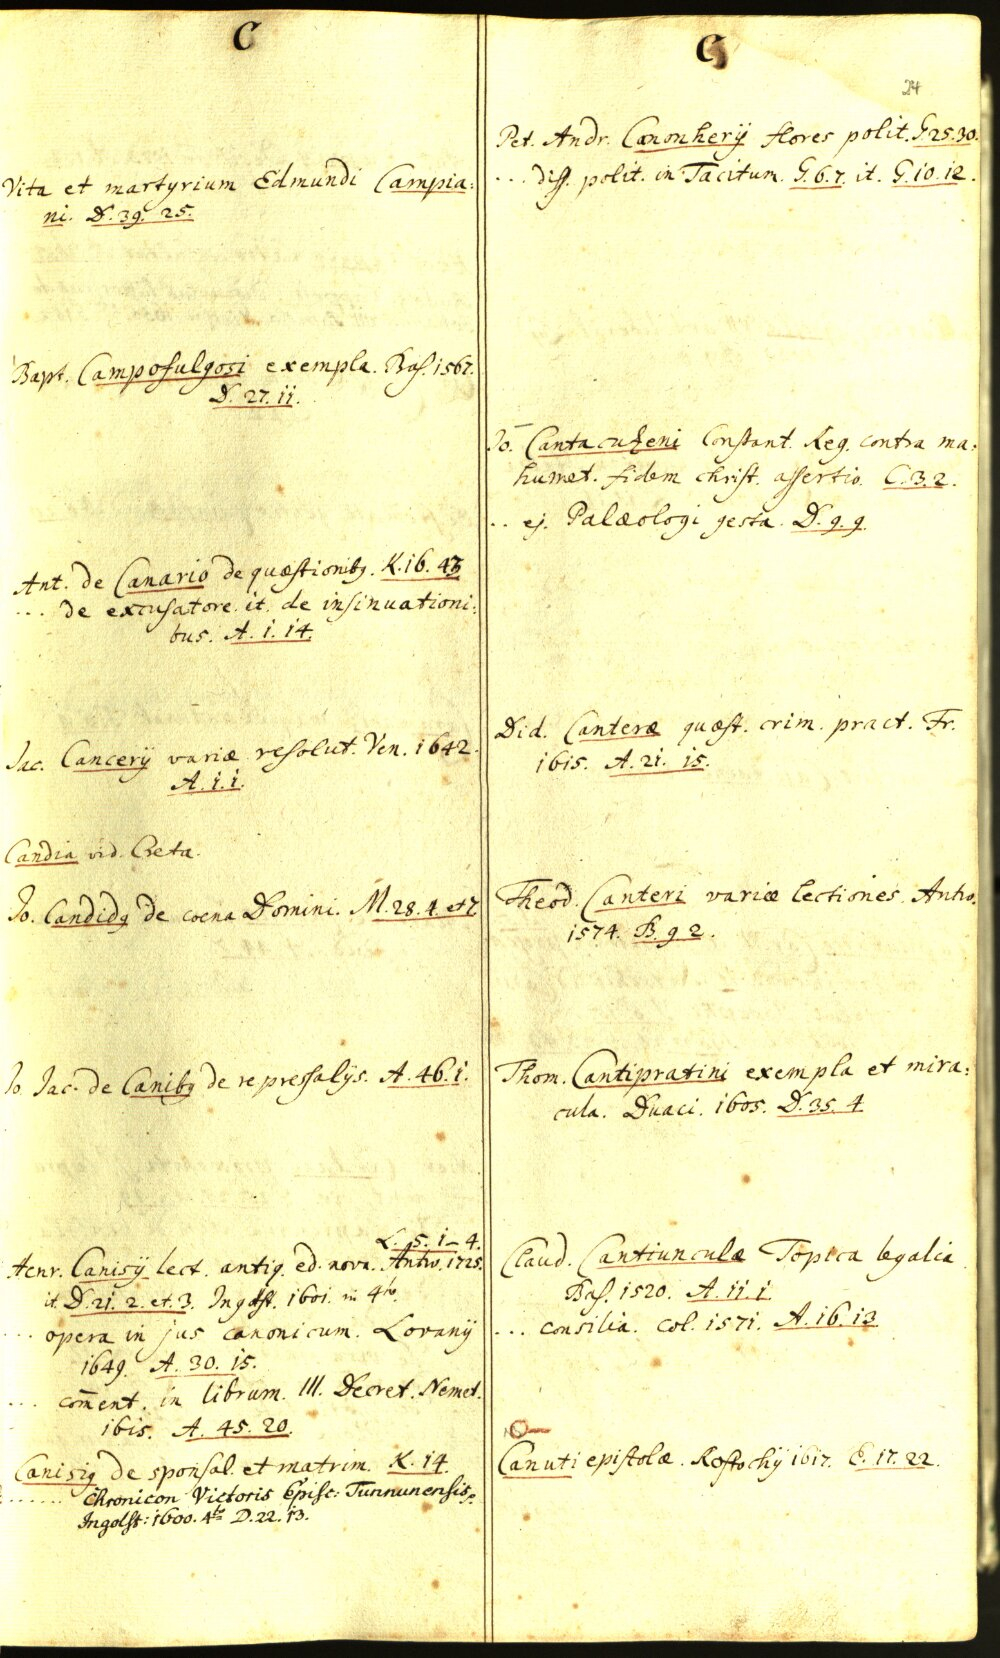 C
Vita et martyrium Edmundi Campia:
ni. D. 39. 25.
Bapt. Campofulgosi exempla. Bas. 1567.
D. 27. 11.
Ant. de Canario de quæstionibg. K. 16. 43
... de excusatore. it. de insinuationi:
bus. A. 1. 14.
Jac. Cancerij variæ resolut. Ven. 1642.
A. 1. 1.
Candia vid. Creta.
Jo. Candidg de coena Domini. M. 28. 4. et 7
Jo Jac. de Canibg de repressalijs. A. 46. 1.
L. 5. 1-4.
Henr. Canisij lect. antiq. ed. nova. Antw. 1725.
it. D. 21. 2. et. 3. Ingolst. 1601. in 4to.
... opera in jus canonicum. Lovanij
1649. A. 30. 15.
... com̄ent. in librum. III. Decret. Nemet.
1615. A. 45. 20.
Canisig de sponsal. et matrim. K. 14.
...... Chronicon Victoris Episc: Tunnunensis.
Ingolst: 1600. 4to D. 22. 13.
C
24
Pet. Andr. Canonherij flores polit. G. 25. 30.
... diss. polit. in Tacitum. G. 6. 7. it. G. 10. 12.
Jo. Cantacuzeni Constant. Reg. contra ma:
humet. fidem christ. assertio. C. 3. 2.
.. ej. Palæologi gesta. D. 9. 9.
Did. Canteræ quæst. crim. pract. Fr.
1615. A. 21. 15.
Theod. Canteri variæ lectiones. Antw.
1574. B. 9 2.
Thom. Cantipratini exempla et mira:
cula. Duaci. 1605. D. 35. 4
Claud. Cantiunculæ Topica legalia
Bas. 1520. A. 11. 1.
... consilia. Col. 1571. A. 16. 13
Canuti epistolæ. Rostochij 1617. E. 17. 22.